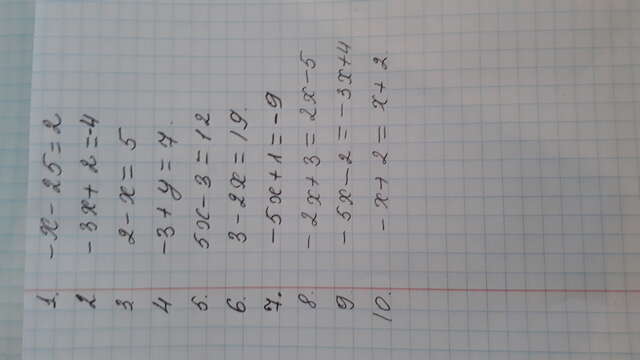 1. -x - 25 = 2
2 -3x + 2 = -4
3 2 - x = 5
4 -3 + y = 7.
5. 5x - 3 = 12
6. 3 - 2x = 19.
7. -5x + 1 = -9
8. -2x + 3 = 2x - 5
9 -5x - 2 = -3x + 4
10. -x + 2 = x + 2